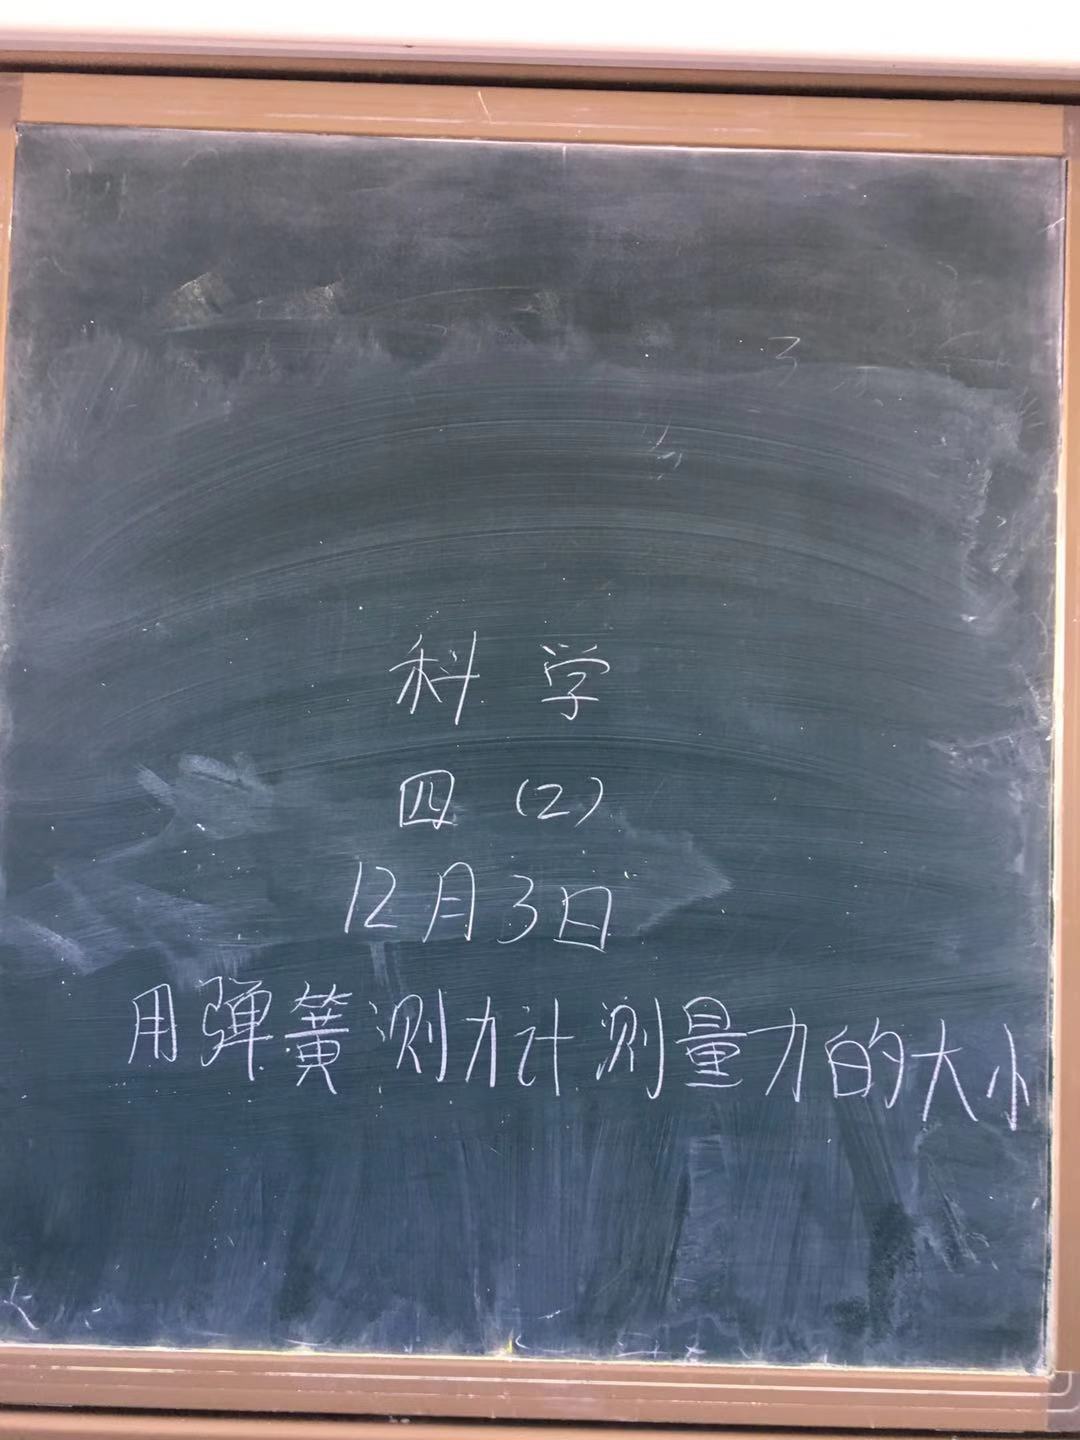 科学
四（2）
12月3日
用弹簧测力计测量力的大小